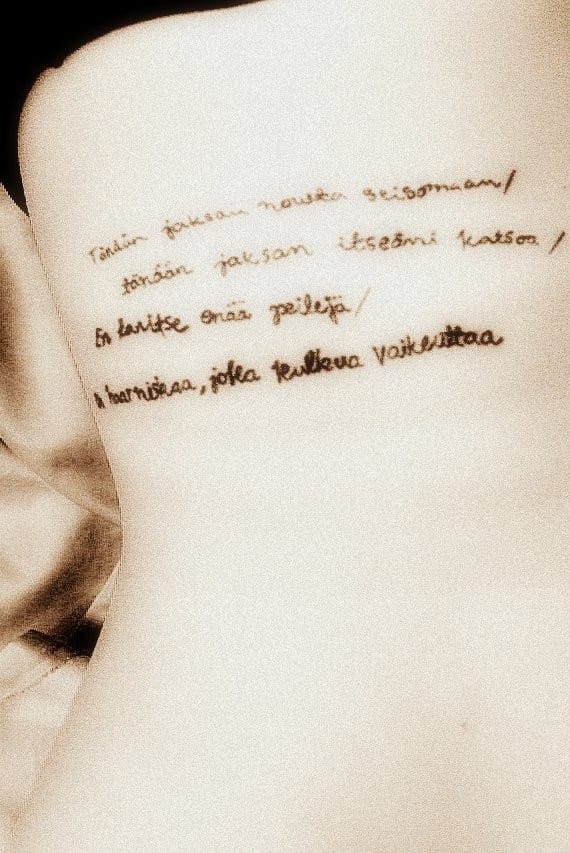 Tänään jaksan nousta seisomaan/
tänään jaksan itseäni katsoa/
En tarvitse enää peilejä/
haarniskaa, joka kulkua vaikeuttaa